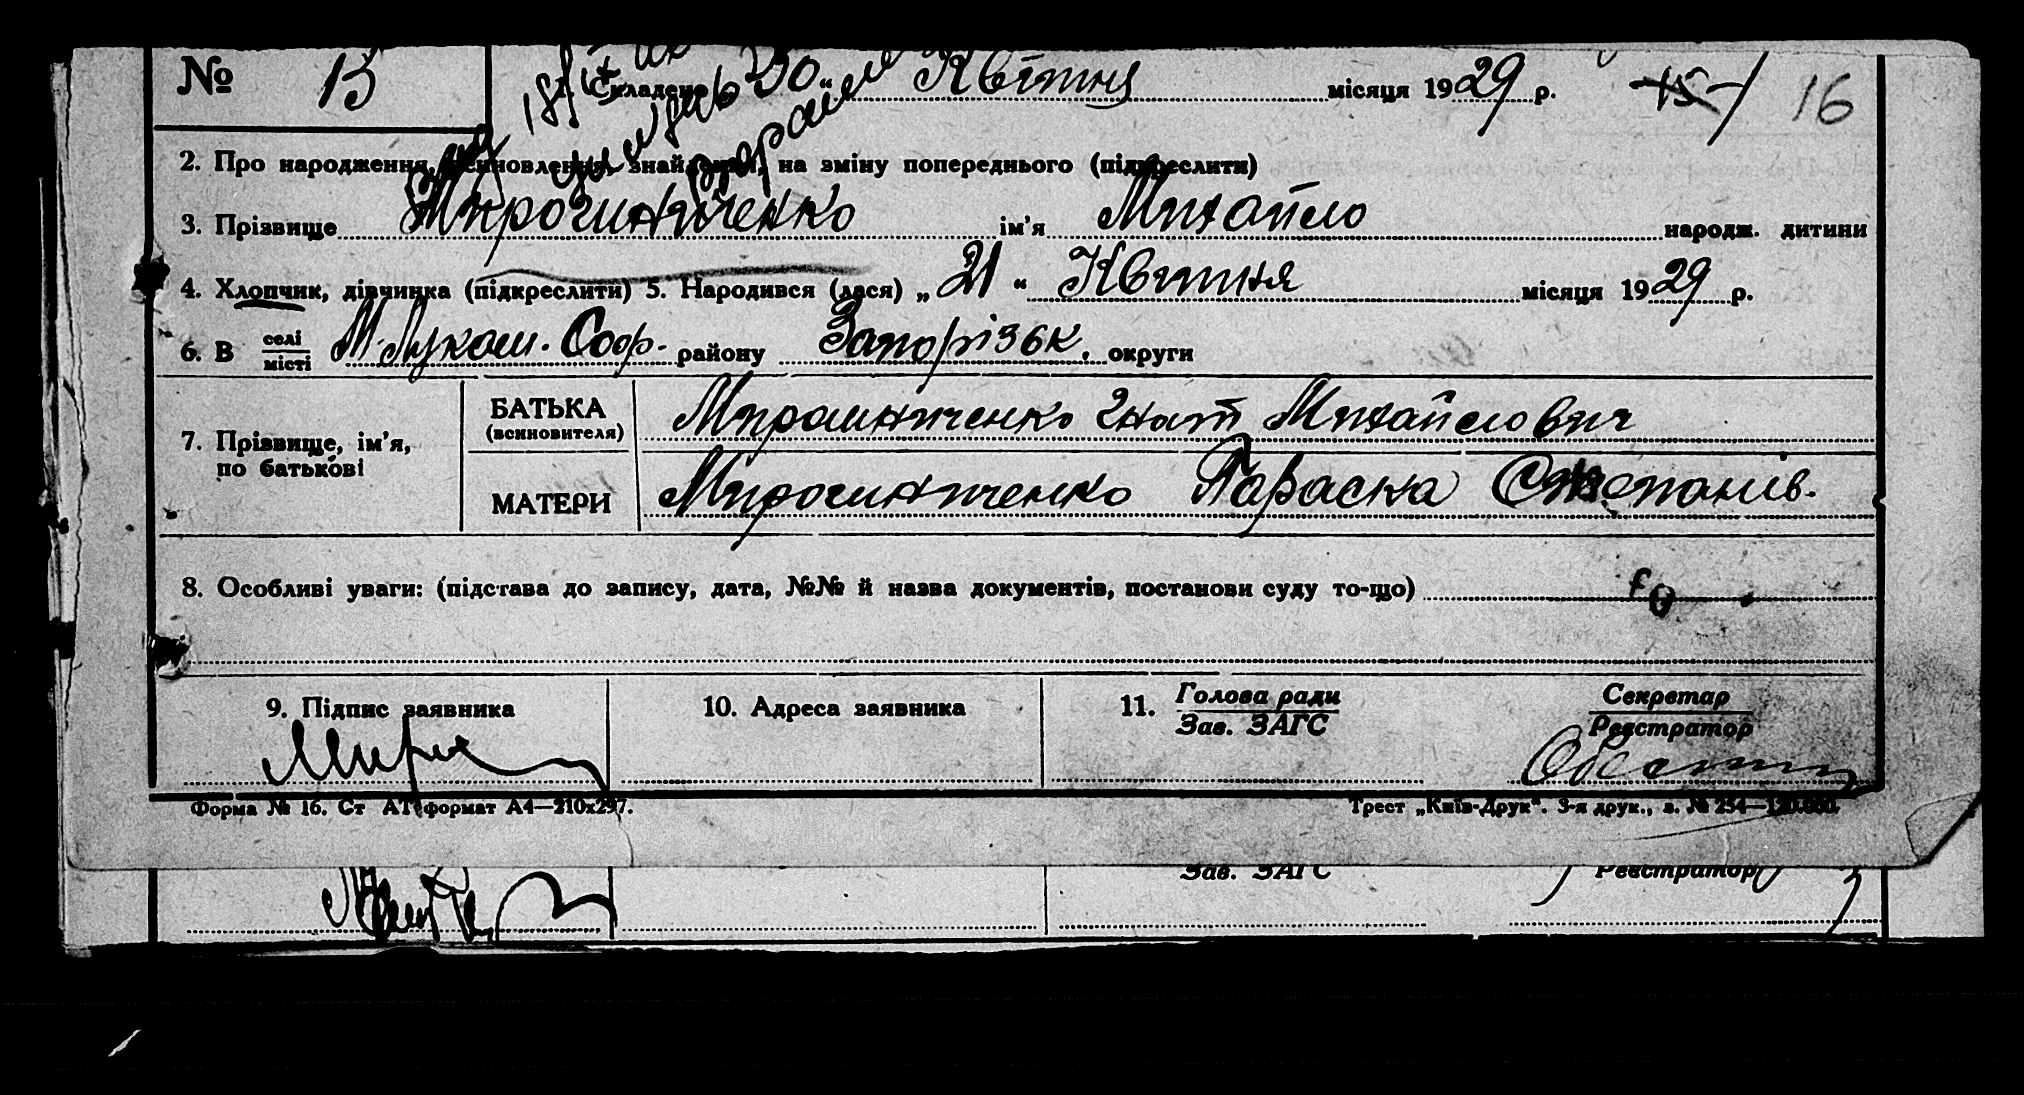 № 15 1. Складено 30 „ Квітня місяця 1929 р. 15 16
2. Про народження, всиновлення, знайдення, на зміну попереднього (підкреслити)
3. Прізвище Мирошниченко ім’я Михайло народж. дитини
4. Хлопчик, дівчинка (підкреслити) 5. Народився (лася) „ 21 “ Квітня місяця 1929 р.
6. В селі
місті М. Лукаш. Соф. району Запорізьк. округи
7. Прізвище, ім’я,
по батькові
БАТЬКА
(всиновителя)
Мирошниченко Гнат Михайлович
МАТЕРИ Мирошниченко Параска Степанів.
8. Особливі уваги: (підстава до запису, дата, №№ й назва документів, постанови суду то-що)
9. Підпис заявника 10. Адреса заявника 11. Голова ради
Зав. ЗАГС Секретар
Реєстратор
Форма № 16. Ст АТ формат А4—210х297. Трест „Київ-Друк“. 3-я друк., з. № 254—120.000.
Зав. ЗАГС Реєстратор